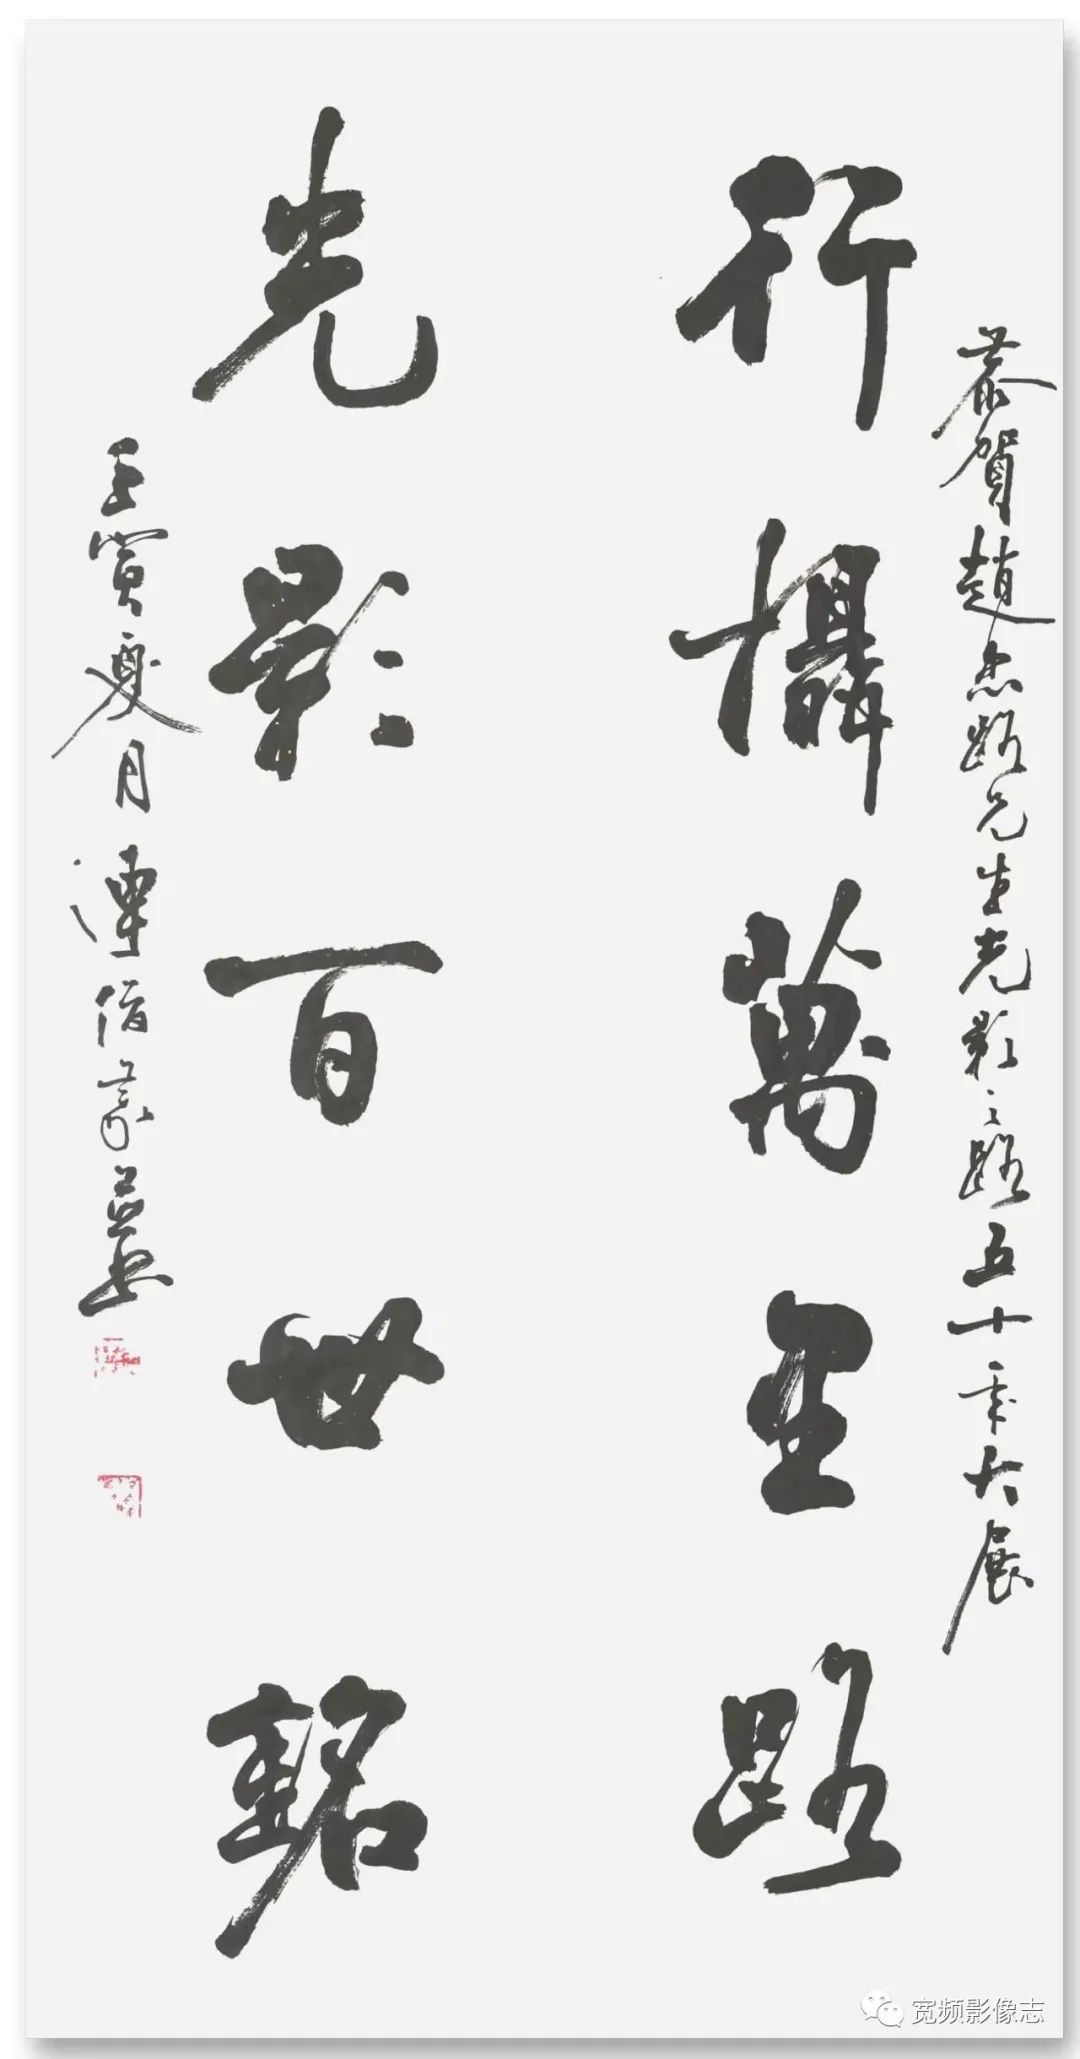 恭賀趙杰路先生光影之路五十年大展
行攝萬里路
光影百世銘
壬寅夏月
宽频影像志